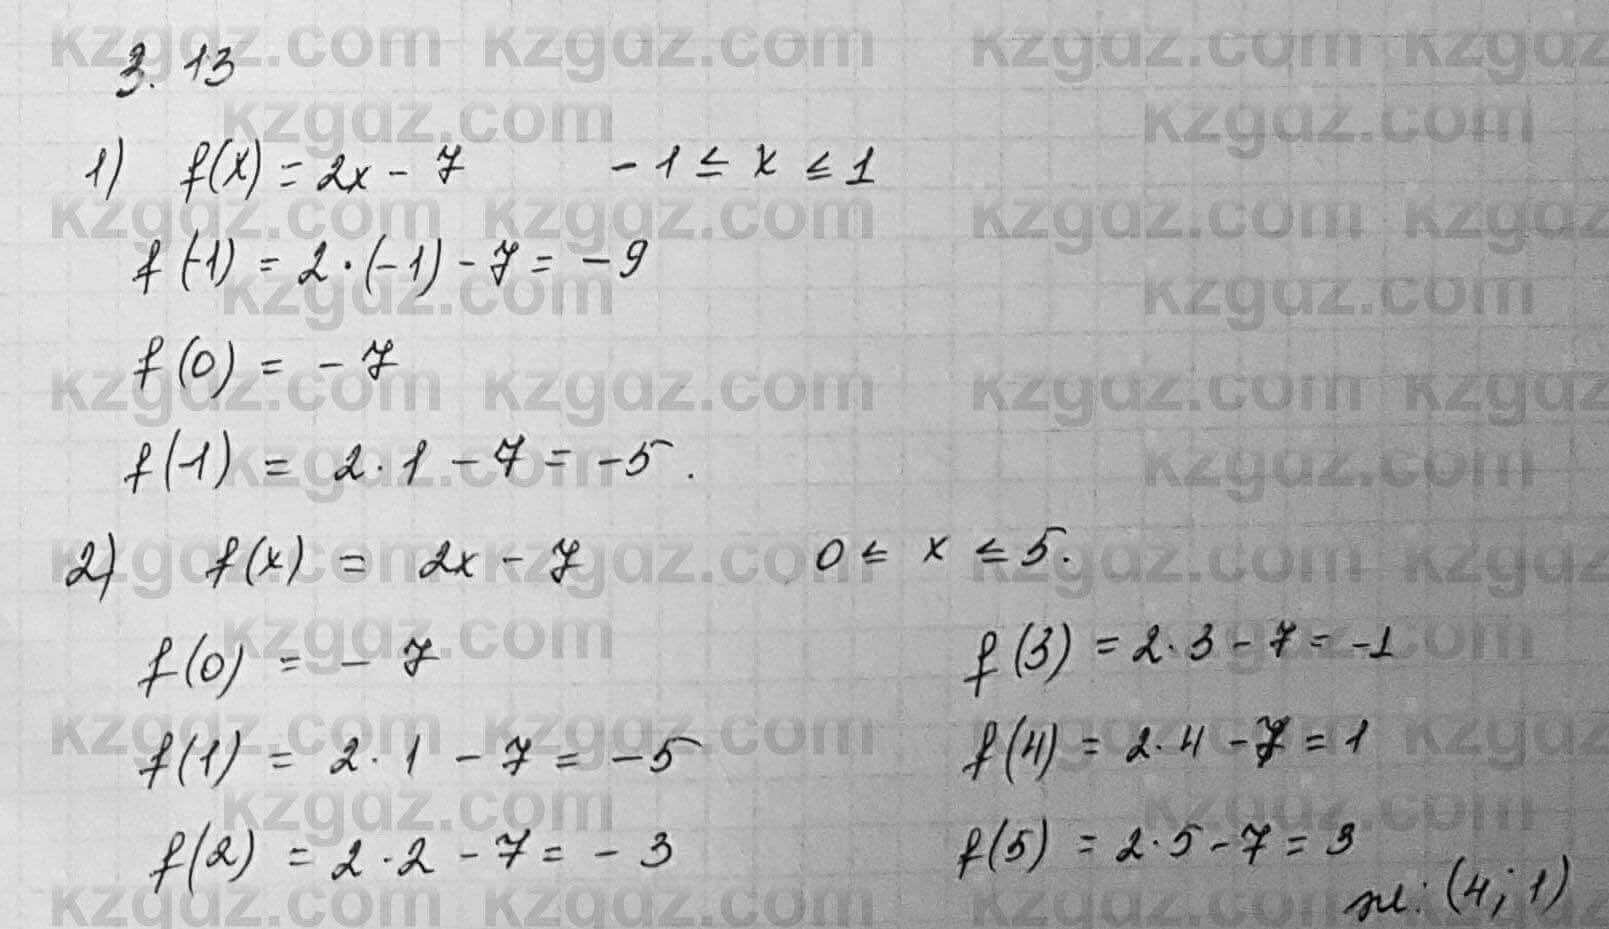 3.13
1) f(x) = 2x - 7 -1 ≤ x ≤ 1
f(-1) = 2·(-1) - 7 = -9
f(0) = -7
f(1) = 2·1 - 7 = -5.
2) f(x) = 2x - 7 0 ≤ x ≤ 5.
f(0) = -7
f(1) = 2·1 - 7 = -5
f(2) = 2·2 - 7 = -3
f(3) = 2·3 - 7 = -1
f(4) = 2·4 - 7 = 1
f(5) = 2·5 - 7 = 3
ж: (4; 1)
kzgdz.com